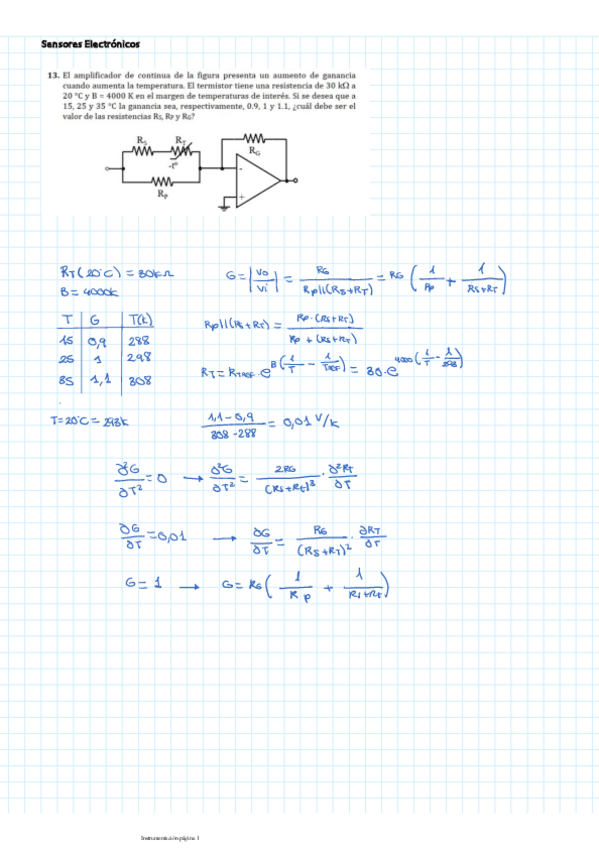 Sensores Electrónicos
13. El amplificador de continua de la figura presenta un aumento de ganancia
cuando aumenta la temperatura. El termistor tiene una resistencia de 30 kΩ a
20 °C y B = 4000 K en el margen de temperaturas de interés. Si se desea que a
15, 25 y 35 °C la ganancia sea, respectivamente, 0.9, 1 y 1.1, ¿cuál debe ser el
valor de las resistencias Rs, Rp y RG?
Rs RT RG
-t°
- +
Rp
RT(20°C) = 30kΩ
B = 4000k
G = |Vo/Vi| = RG/(Rp||(Rs+RT)) = RG (1/Rp + 1/(Rs+RT))
T G T(k)
15 0,9 288
25 1 298
35 1,1 308
Rp||(Rs+RT) = Rp·(Rs+RT)/(Rp+(Rs+RT))
RT = RTREF·e^B(1/T - 1/TREF) = 30·e^4000(1/T - 1/293)
T=20°C = 293k
(1,1-0,9)/(308-288) = 0,01 V/k
∂²G/∂T² = 0 → ∂²G/∂T² = 2RG/(Rs+Rt)³ · ∂²RT/∂T
∂G/∂T = 0,01 → ∂G/∂T = RG/(Rs+RT)² · ∂RT/∂T
G = 1 → G = RG (1/Rp + 1/(Rs+Rt))
Instrumentación página 1